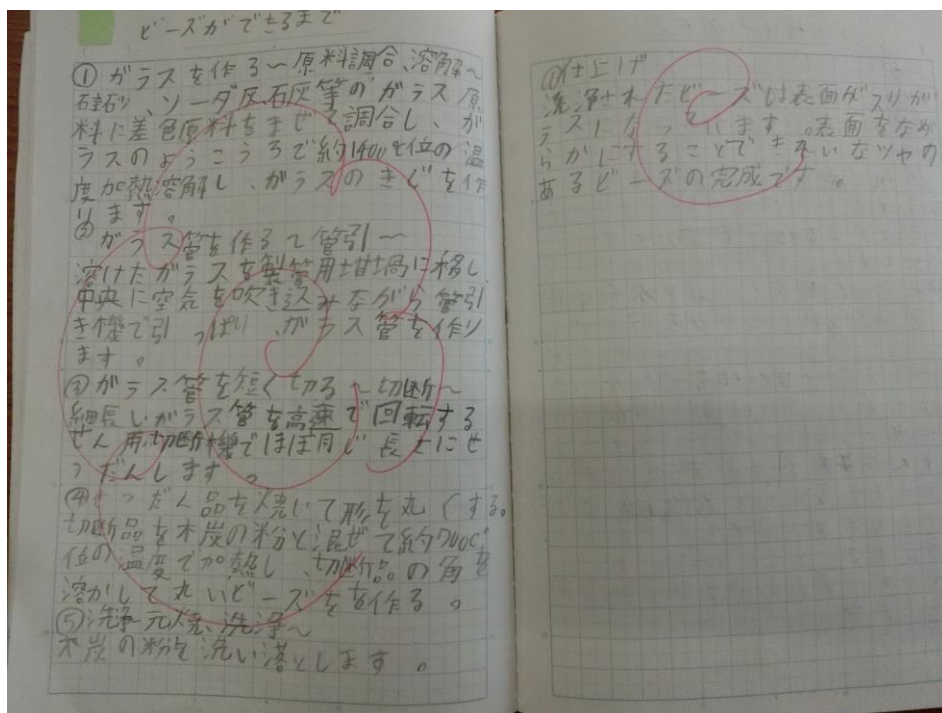 ビーズができるまで
①ガラスを作る〜原料調合、溶解〜
硅砂、ソーダ灰、石灰等のガラス原
料に差色原料をまぜて調合し、が
ラスのようこうろで約1400℃位の温
度加熱溶解し、ガラスのきじを作
ります。
②ガラス管を作る〜管引〜
溶けたガラスを製管用坩堝に移し、
中央に空気を吹き込みながら管引
き機で引っぱり、ガラス管を作り
ます。
③ガラス管を短く切る〜切断〜
細長いガラス管を高速で回転する
せん用切断機でほぼ同じ長さにせ
つだんします。
④せつだん品を焼いて形を丸くする。
切断品を木炭の粉と混ぜて約700℃
位の温度で加熱し、切断品の角を
溶かして丸いビーズをを作る。
⑤洗浄 元焼、洗浄〜
木炭の粉を洗い落とします。
仕上げ
洗浄されたビーズは表面がスリガ
ラスになっています。表面をなめ
らかにすることできれいなツヤの
あるビーズの完成です。